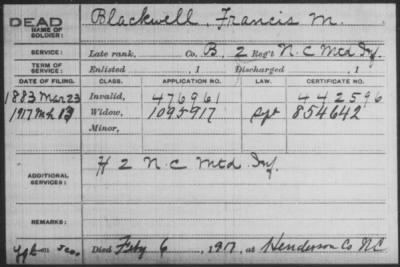 DEAD
NAME OF SOLDIER: Blackwell, Francis M.
SERVICE: Late rank, Co. B, 2 Reg't N.C. Mtd Inf.
TERM OF SERVICE: Enlisted , 1 Discharged , 1
DATE OF FILING. CLASS. APPLICATION NO. LAW. CERTIFICATE NO.
1883 Mar 23 Invalid, 476961 442596
1917 Mch 13 Widow, 1095917 854642
Minor,
ADDITIONAL SERVICES: H 2 N C Mtd Inf.
REMARKS:
Died Feby 6, 1917, at Henderson Co NC